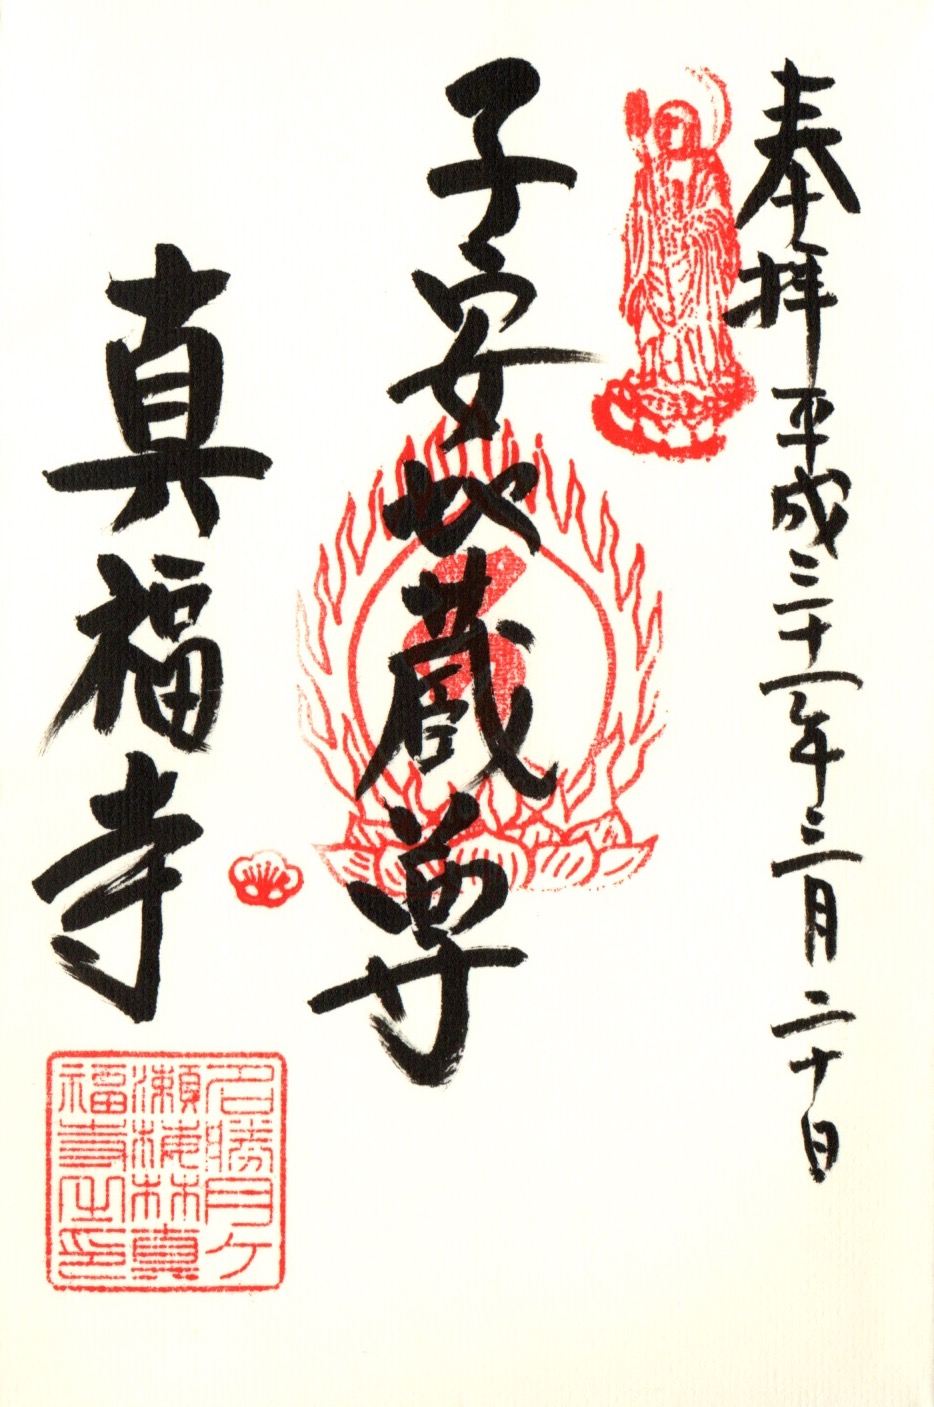 奉拝 平成三十一年三月二十日
子安地蔵尊
真福寺
名勝月ケ
瀬梅林真
福寺之印